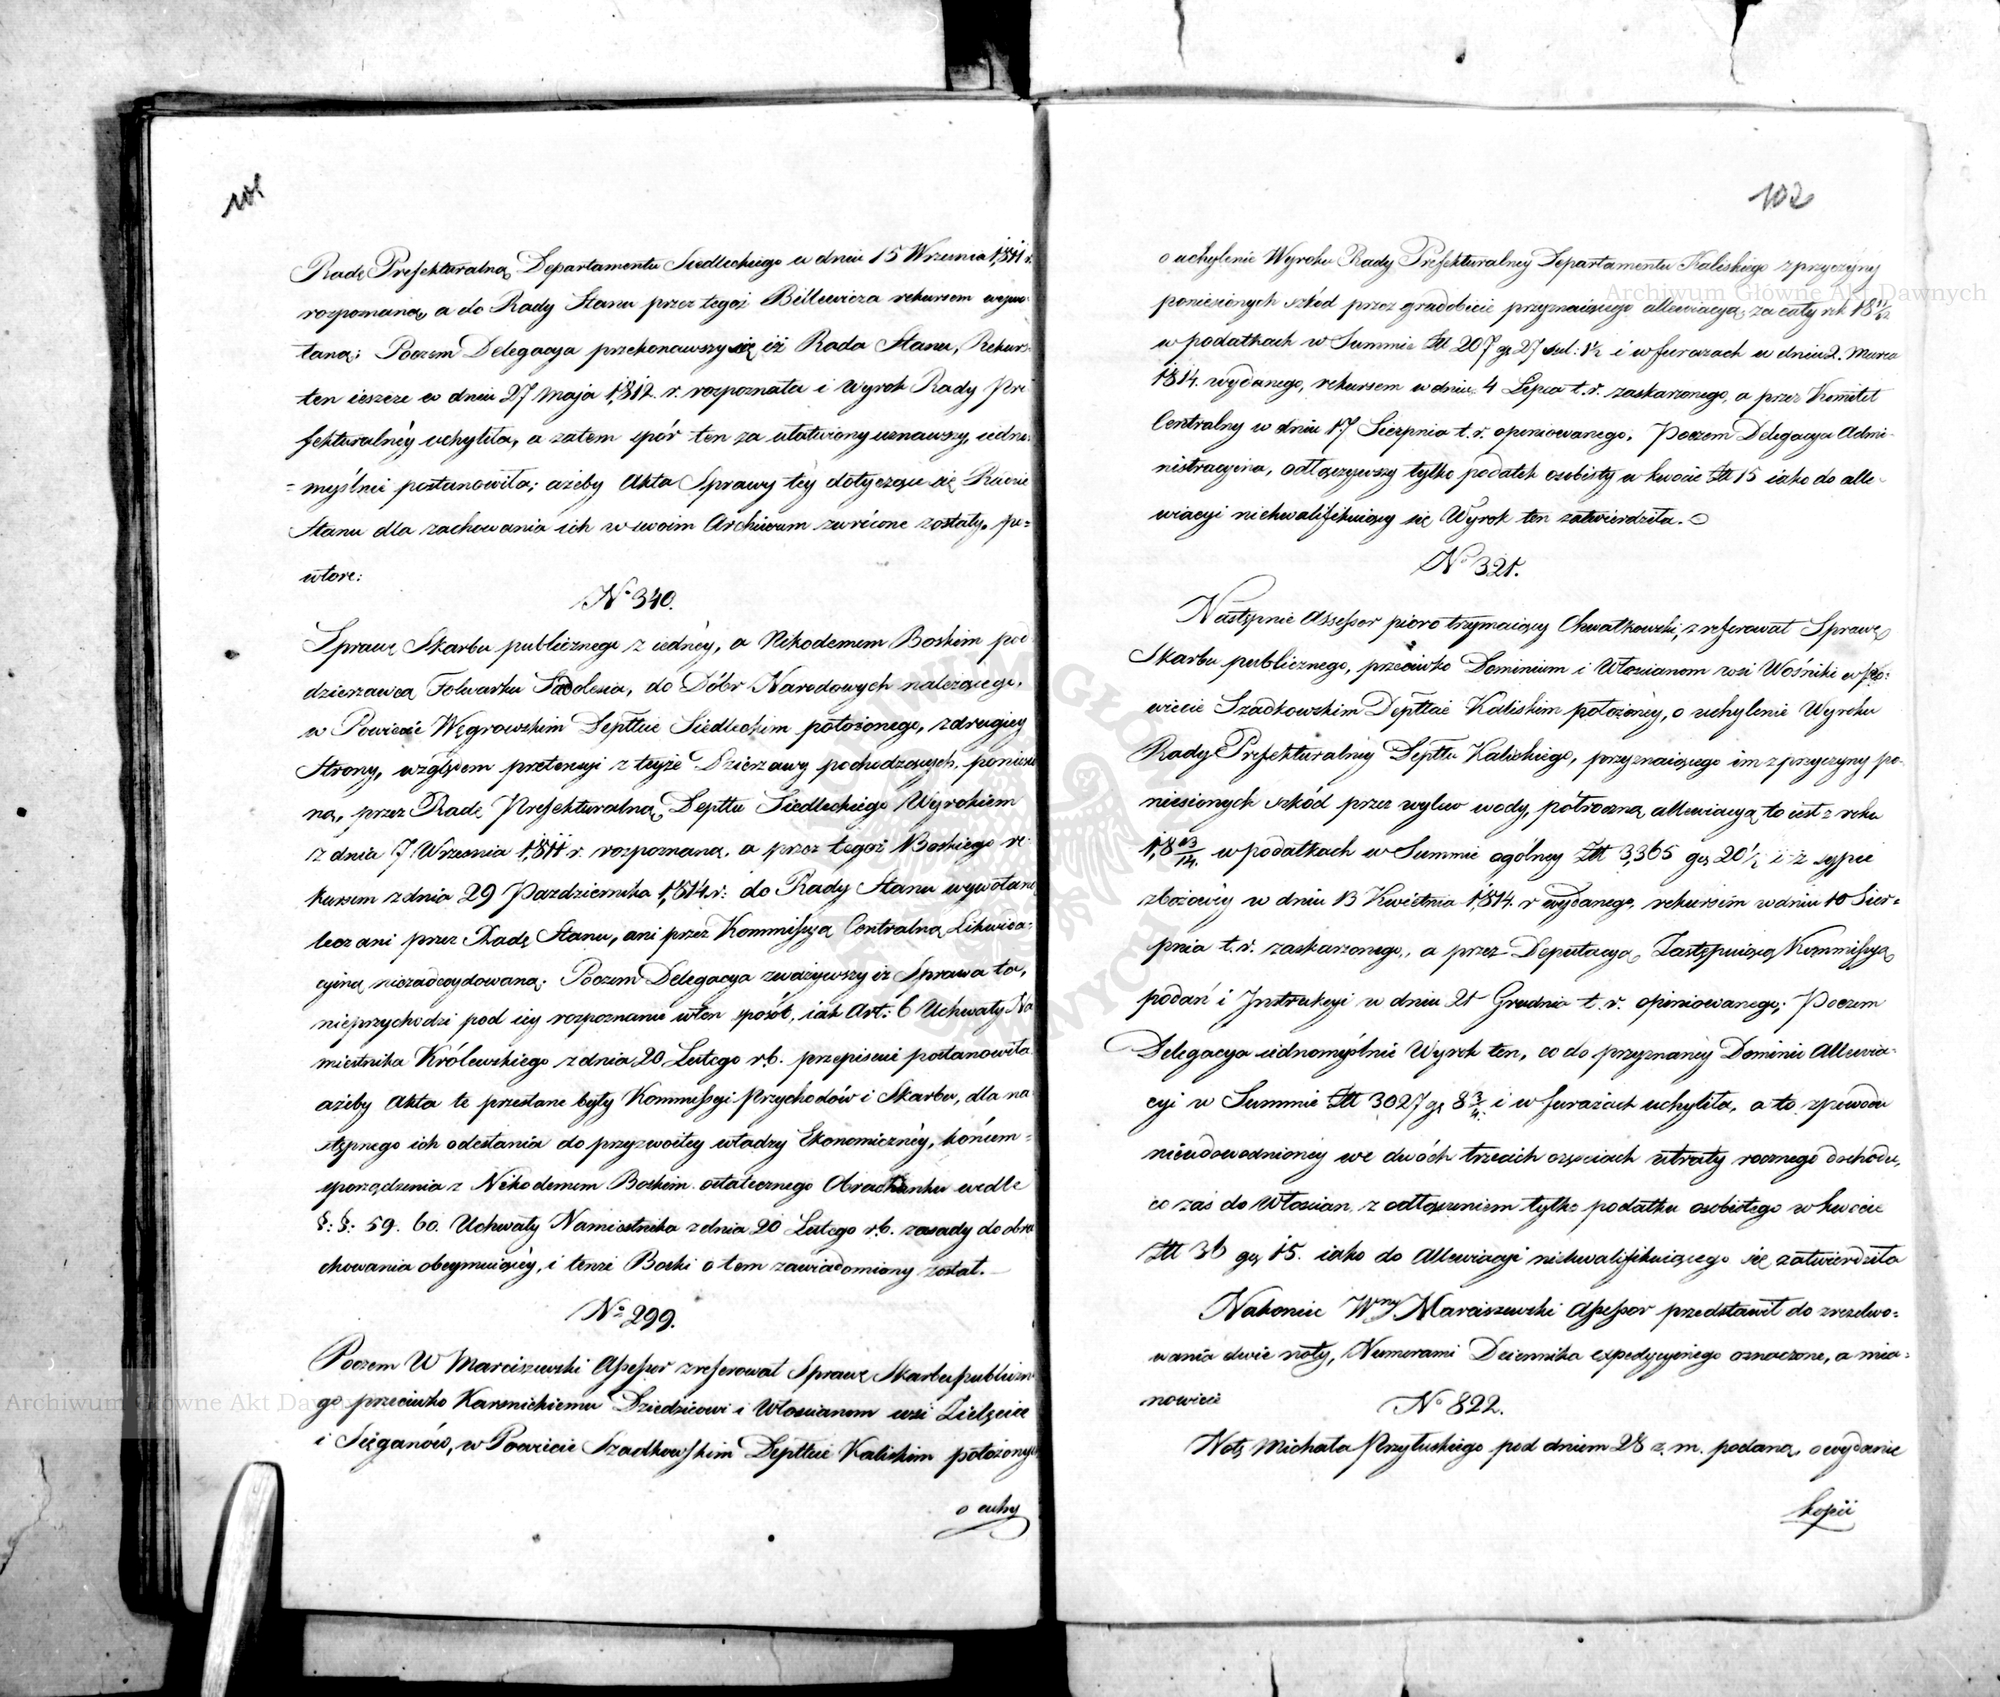 101
Radę Prefekturalną Departamentu Siedleckiego w dniu 15 Września 1,811 r.
rozpoznaną, a do Rady Stanu przez tegoż Billewicza rekursem wywo-
łaną; Poczem Delegacya przekonawszy się iż Rada Stanu, Rekurs
ten ieszcze w dniu 27 Maja 1,812. r. rozpoznała i Wyrok Rady Pre
fekturalnéy uchyliła, a zatem spór ten za ułatwiony uznawszy, iedno=
=myślnie postanowiła; ażeby Akta Sprawy téy dotyczące się Radzie
Stanu dla zachowania ich w swoim Archiwum zwrócone zostały. po=
wtore:
No 340.
Sprawę Skarbu publicznego z iednéy, a Nikodemem Boskim pod
dzierzawcą Folwarku Podolesia, do Dóbr Narodowych należącego,
w Powiecie Węgrowskim Depttcie Siedleckim położonego, z drugiey
Strony, względem pretensyi z teyże Dzierzawy pochodzących, poniesio
ną, przez Radę Prefekturalną Depttu Siedleckiego Wyrokiem
z dnia 7 Września 1,811 r. rozpoznaną, a przez tegoż Boskiego re
kursem z dnia 29 Pazdziernika 1,814. r: do Rady Stanu wywołaną
lecz ani przez Radę Stanu, ani przez Kommissyą Centralną Likwida-
cyiną niezadecydowaną. Poczem Delegacya zważywszy iż Sprawa ta,
nieprzychodzi pod iey rozpoznanie w ten sposób, iak Art: 6 Uchwały Na
miestnika Królewskiego z dnia 20 Lutego r.b. przepisuie postanowiła
ażeby Akta te przesłane były Kommissyi Przychodów i Skarbu, dla na
stępnego ich odesłania do przyzwoitey władzy Ekonomicznéy, końcem=
sporządzenia z Nikodemem Boskim ostatecznego Obrachunku wedle
§: §: 59. 60. Uchwały Namiestnika z dnia 20 Lutego r.b. zasady do obra
chowania obeymuiącéy, i tenże Boski o tem zawiadomiony został.
No 299.
Poczem W Marciszewski Assessor zreferował Sprawę Skarbu publiczne
go przeciwko Karsnickiemu Dziedzicowi i Włoscianom wsi Zielęcice
i Sięganów, w Powiecie Szadkowskim Depttcie Kaliskim położonych
o uchy
102
o uchylenie Wyroku Rady Prefekturalney Departamentu Kaliskiego z przyczyny
poniesionych szkód przez gradobicie przyznaiącego allewiacyą za cały rok 18 11/12
w podatkach w Summie Ztt 207 gr 27 szel: 1½ i w furazach w dniu 2. Marca
1,814. wydanego, rekursem w dniu 4 Lipca t.r. zaskarzonego, a przez Komitet
Centralny w dniu 17 Sierpnia t.r. opiniowanego. Poczem Delegacya Admi-
nistracyina, odłączywszy tylko podatek osobisty w kwocie Ztt 15 iako do alle-
wiacyi niekwalifikuiący się Wyrok ten zatwierdziła.
No 321.
Następnie Assessor pioro trzymaiący Chwałkowski, zreferował Sprawę
Skarbu publicznego, przeciwko Dominium i Włoscianom wsi Wośniki w po:
wiecie Szadkowskim Depttcie Kaliskim położoney, o uchylenie Wyroku
Rady Prefekturalney Depttu Kaliskiego, przyznaiącego im z przyczyny po-
niesionych szkód przez wylew wody, półroczną allewiacyą to iest z roku
1,8 13/14. w podatkach w Summie ogólney Ztt 3,365 gr 20½ i z sypie
zbożowey w dniu 13 Kwietnia 1,814. r wydanego, rekursem w dniu 10 Sier=
pnia t.r. zaskarzonego, a przez Deputacyą Zastępuiącą Kommissyą
podań i Instrukcyi w dniu 21 Grudnia t.r. opiniowanego; Poczem
Delegacya iednomyślnie Wyrok ten, co do przyznaney Dominii Allewia-
cyi w Summie Ztt 3027 gr 8 3/4. i w furażach uchyliła, a to z powodu
nieudowodnioney we dwóch trzecich częściach utraty rocznego dochodu,
co zaś do Włoscian z odłączeniem tylko podatku osobistego w kwocie
Ztt 36 gr 15. iako do Allewiacyi niekwalifikuiącego się zatwierdziła
Nakoniec Wny Marciszewski Assessor przedstawił do zrezolwo=
wania dwie noty, Numerami Dziennika expedycyinego oznaczone, a mia=
nowicie
No 822.
Notę Michała Przyłuskiego pod dniem 28 z. m. podaną, o wydanie
kopii
Archiwum Główne Akt Dawnych
Archiwum Główne Akt Dawnych
ARCHIWUM GŁÓWNE AKT DAWNYCH